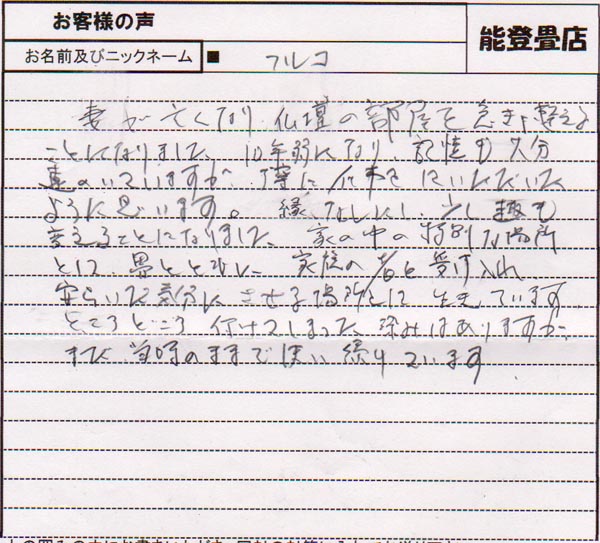 お客様の声
能登畳店
お名前及びニックネーム ■ フルコ
妻が亡くなり、仏壇の部屋を急き、整える
ことになりました。10年弱になり、記憶も大分
遠のいていますが、丁寧に仕事をしていただいた
ように思います。縁なしにし、少し趣も
変えることになりました。家の中の特別な場所
として、畳とともに、家族の 心を受け入れ
安らいだ気分にさせる場所として生きています
ところどころ付けてしまった染みはありますが、
まだ当時のままで使い続けています